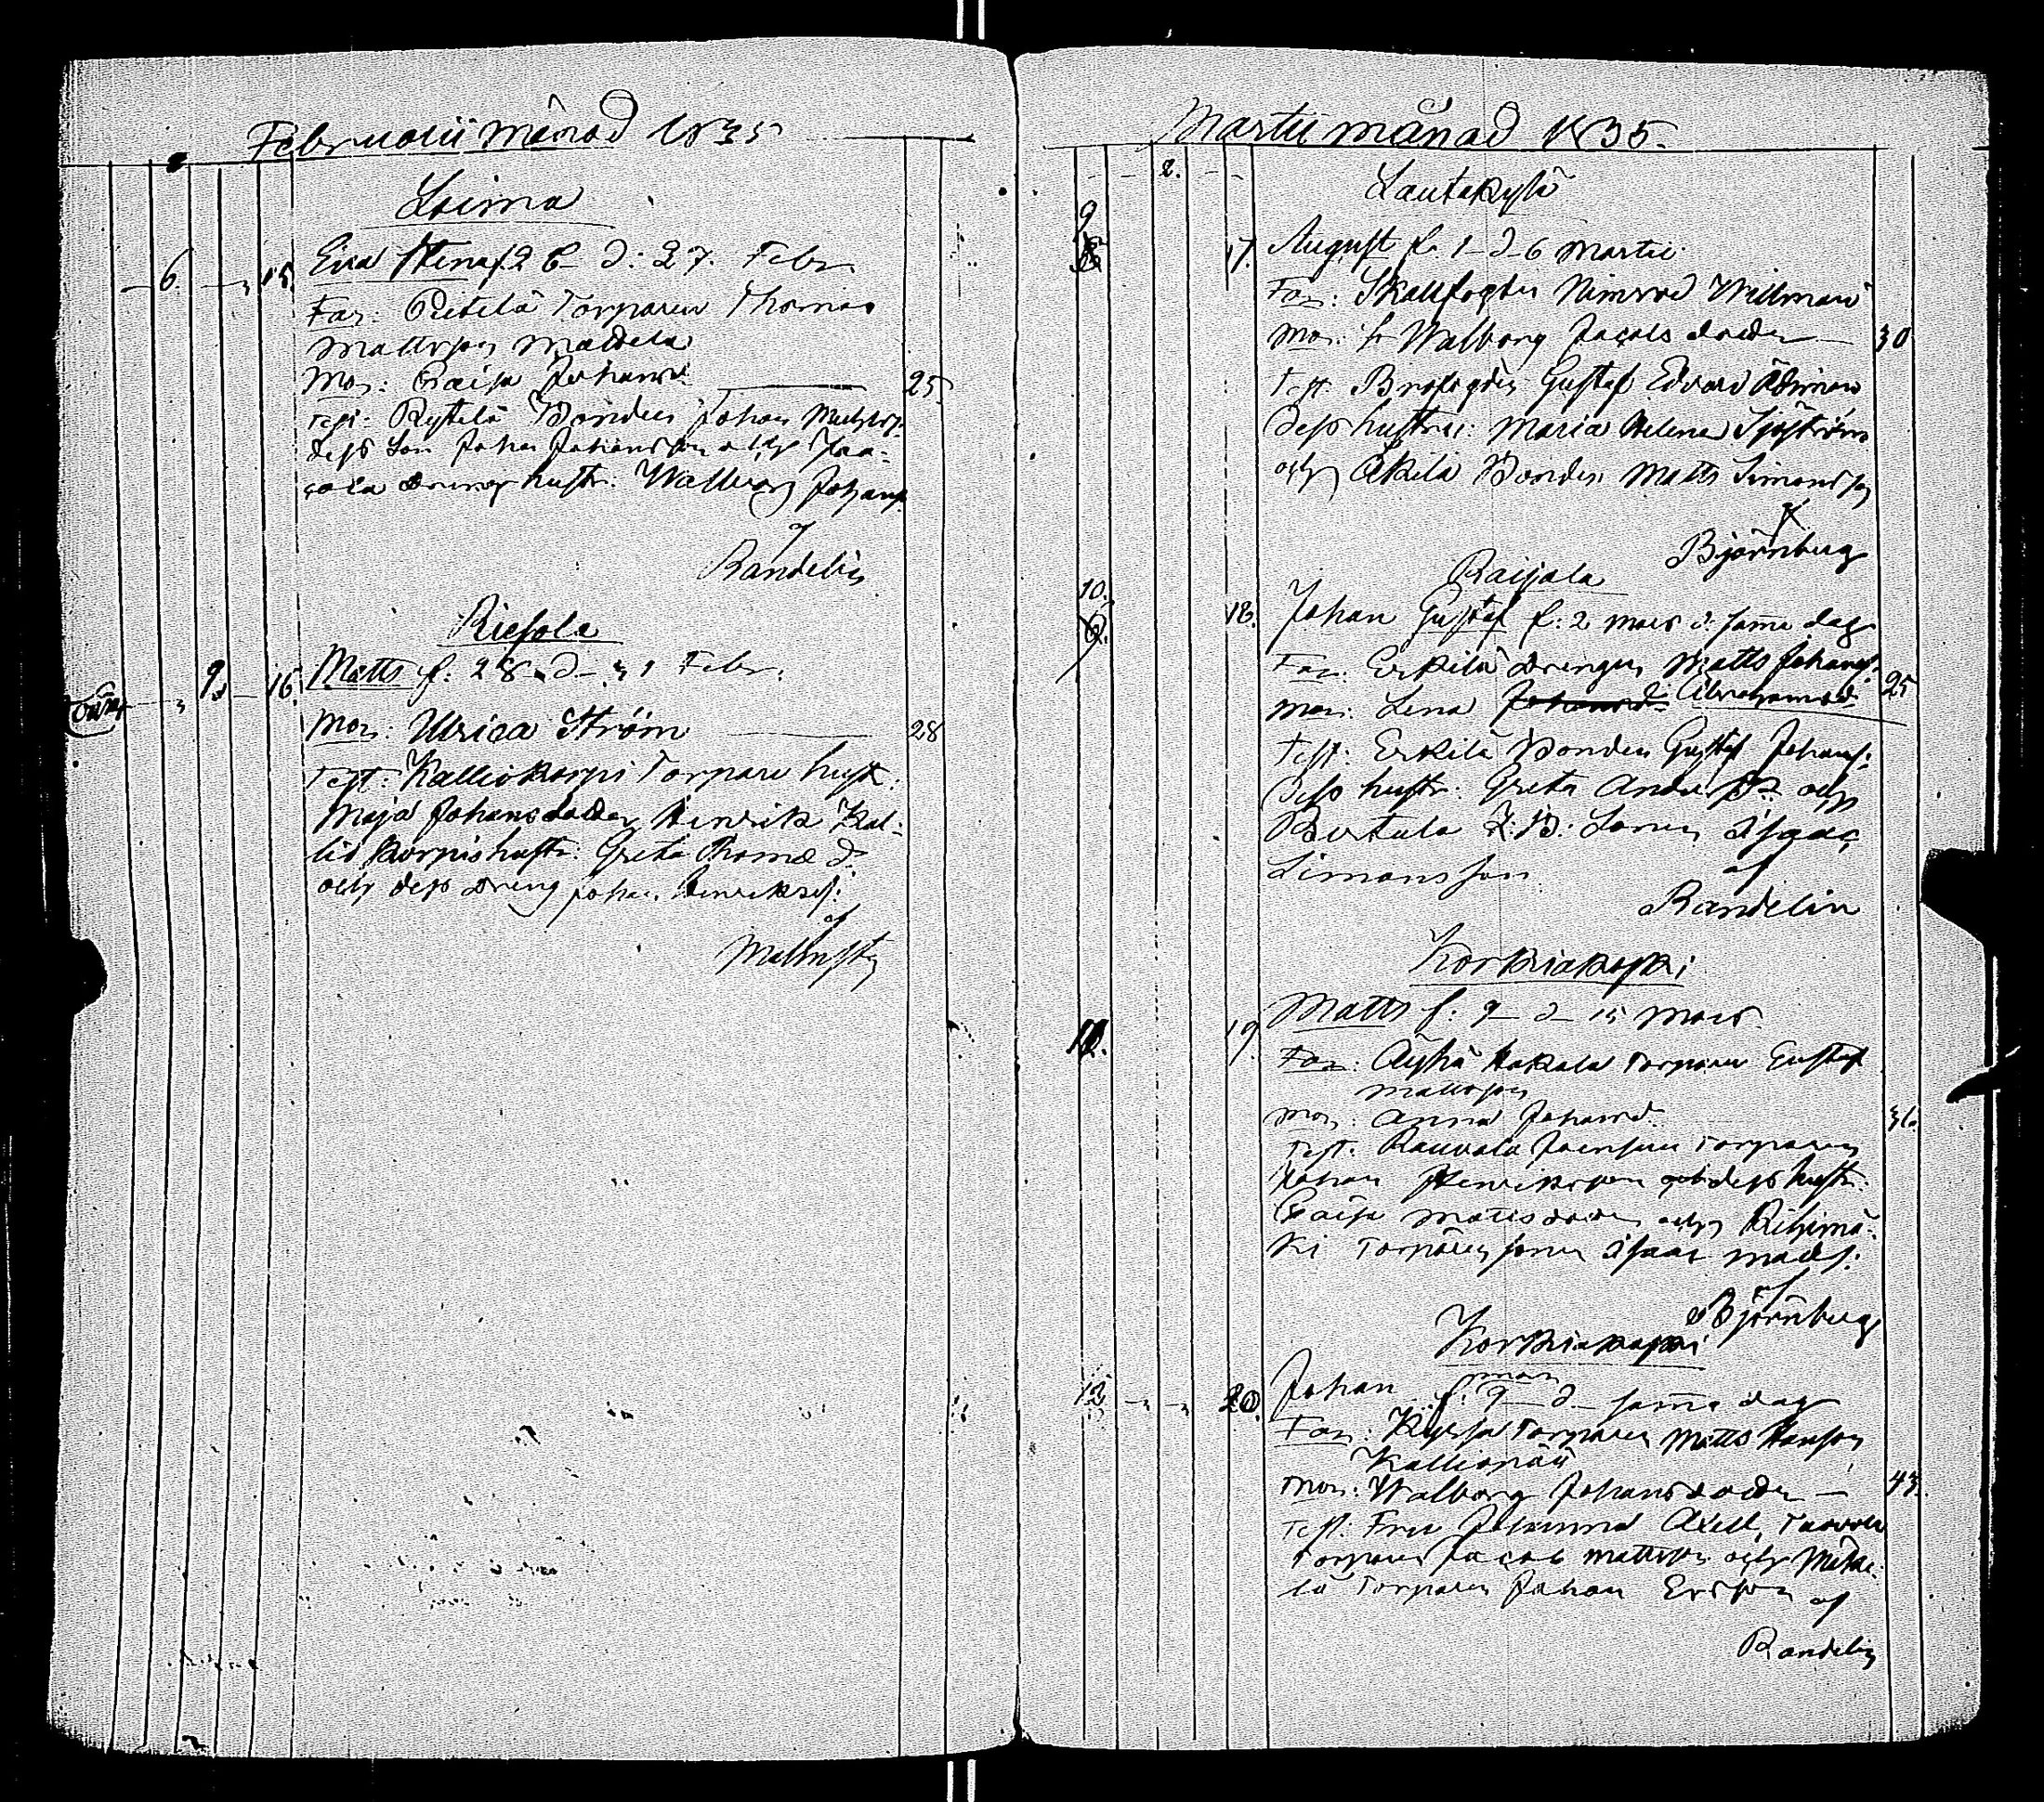 Februarii månad 1835
Loima
6. 15. Eva Stina f. 26 d: 27. Febr.
Far: Pietelä Torparen Thomas
Mattsson
Mor: Caisa Johansd. 25
Test: Bonden Johan
dess Son Johan Johansson och
dreng hustr: Walborg Johansd.
af
Randelin
Riesola
9. 16. Matts f. 28 d. 31 Febr.
Mor: Ulrica Ström 28
Test: Kalliokorpi Torpare hustr:
Maja Johansdotter, Henrik Kal-
liokorpis hustr: Greta Thomæ d.
och dess dreng Johan Henrikss:
af
Malmsten
Martii månad 1835.
2.
Lautakylä
9 17. August f. 1 d 6 Martii
Far: Skallfogden Nimrod Willman
Mor: h Walborg Jacobsdotter 30
Test: Brofogden Gustaf Edvard
Dess hustru: Maria Helena Sjöström
och Äkilä Bonden Matts Simonsson
af
Björnberg
Raijala
10. 18. Johan Gustaf f: 2 Mars d. samma dag
Far: Erkilä Drengen Matts Johanss:
Mor: Lena Johansd. Abrahamsd. 25
Test: Erkilä Bonden Gustaf Johanss:
Dess hustr: Greta Anders D. och
Bertula Sonen Isaac
Simonsson
af
Randelin
Korkiakoski
11. 19. Matts f: 9 d 15 Mars.
Far: Hakala Torparen Gustaf
Mattsson
Mor: Anna Johansd. 36.
Test: Rauvola Torparen
Johan Henriksson och dess hustr:
Caisa Mattsdotter och Rihimä-
ki Torparesonen Isaac Matts:
af
Björnberg
Korkiakoski
12 20. Johan f: 9 Mars d. samma dag
Far: Torparen Matts Hansson
Kalliopää
Mor: Walborg Johansdotter 43.
Test: Fru Johanna Axell,
Torparen Jacob Mattsson och
lä Torparen Johan Ersson
af
Randelin